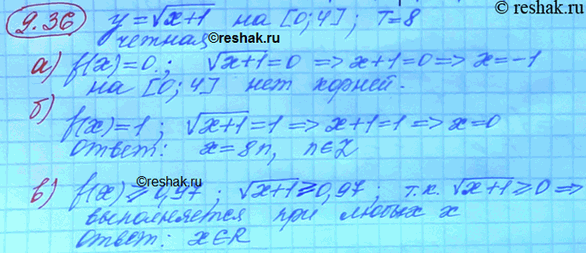 9.36 y=√x+1 на [0;4]; T=8
четная
а) f(x)=0; √x+1=0 => x+1=0 => x=-1
на [0;4] нет корней.
б) f(x)=1; √x+1=1 => x+1=1 => x=0
ответ: x=8n, n∈Z
в) f(x)≥0,97; √x+1≥0,97; т.к. √x+1≥0 =>
выполняется при любых x
ответ: x∈R